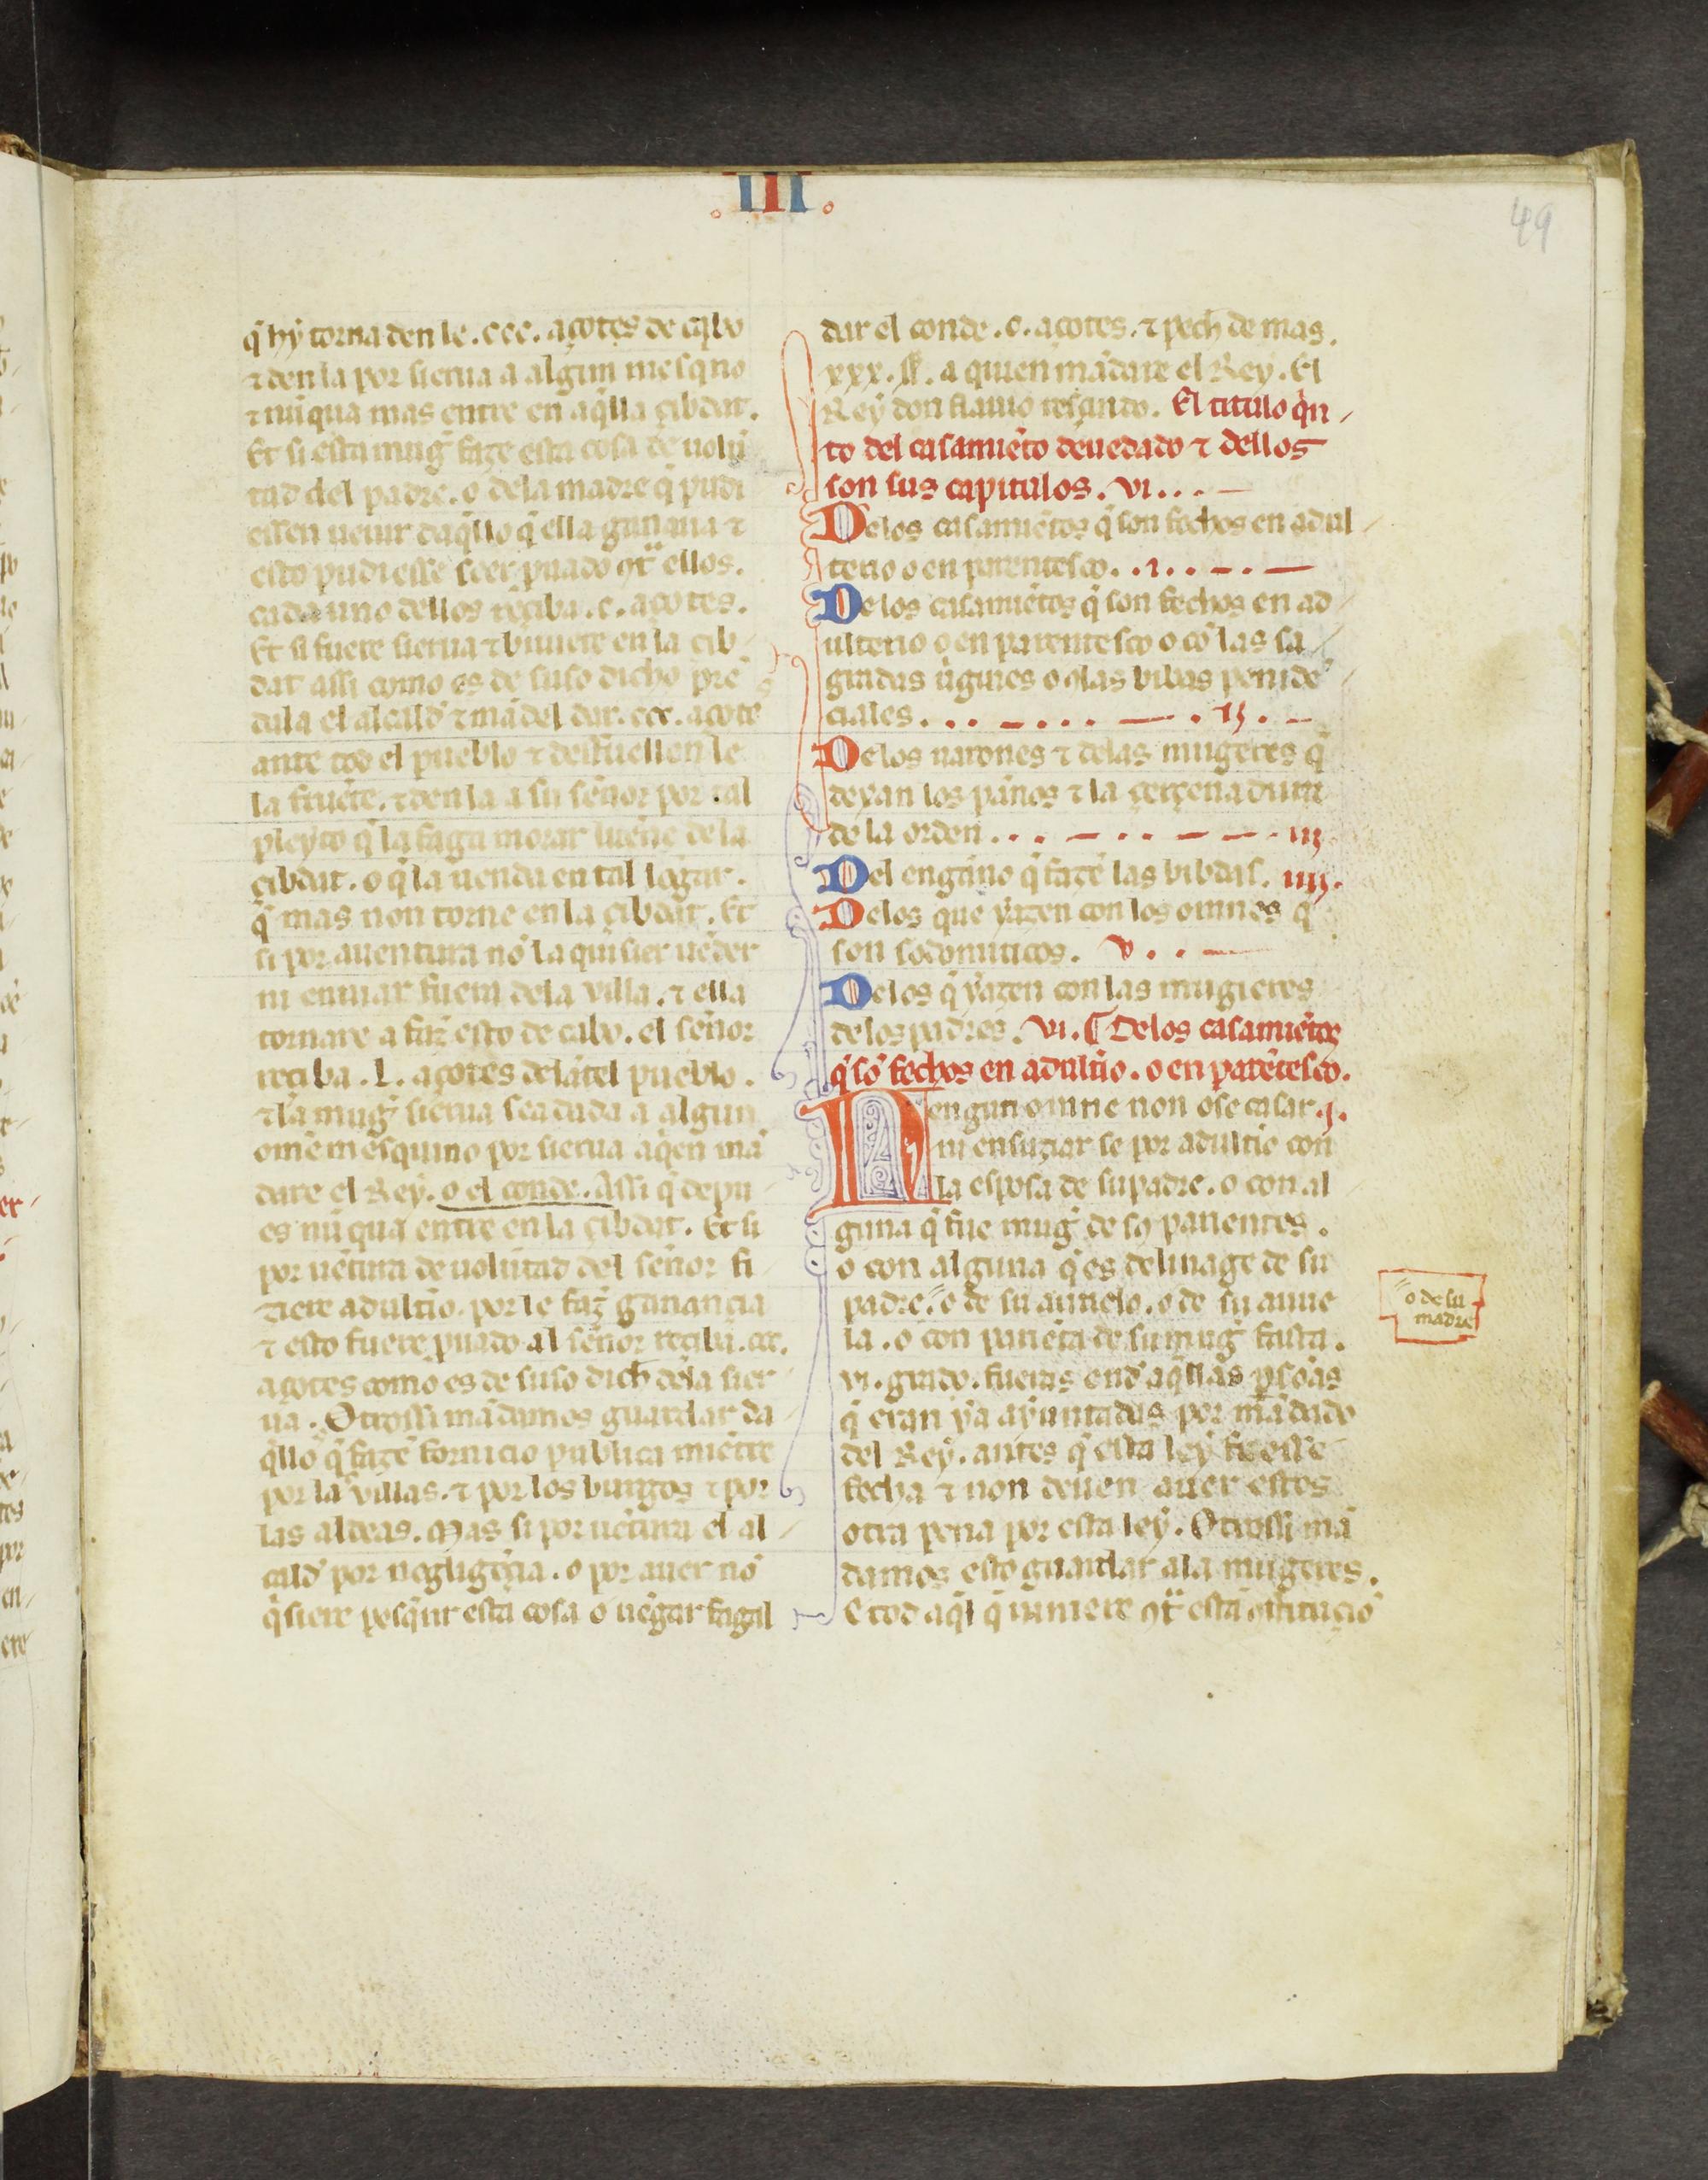 .III.
49
q̃ hy torna den le .ccc. açotes de cabo
⁊ den la por sierua a algun mesq̃no
⁊ nũqua mas entre en aq̃lla çibdat.
Et si esta mug̃ faze esta cosa de uolũ
tad del padre. o dela madre q̃ pudi
essen ueuir daq̃llo q̃ ella gãnaua ⁊
esto pudiesse seer p̃uado cõt̃ ellos.
cada uno dellos reçiba .c. açotes.
Et si fuere sierua ⁊ biuiere en la çib
dat assi como es de suso dicho pre
dala el alcald̃ ⁊ mãdel dar .ccc. açote
ante tod el pueblo ⁊ desfuellen le
la fruẽte. ⁊ den la a su señor por tal
pleyto q̃ la faga morar lueñe de la
çibdat. o q̃ la uenda en tal logar.
q̃ mas non torne en la çibdat. Et
si por auentura nõ la quisier uẽder
ni enuiar fuera dela villa. ⁊ ella
tornare a faz̃ esto de cabo. el señor
reçiba .L. açotes delãtel pueblo.
⁊ la mug̃ sierua sea dada a algun
omẽ mesquino por sierua a q̃en mã
dare el Rey. o el conde. Assi q̃ depu
es nũqua entre en la çibdat. Et si
por uẽtura de uolũtad del señor fi
ziere adult̃io. por le faz̃ ganançia
⁊ esto fuere p̃uado al señor reçiba .ccc.
açotes como es de suso dich̃ dela sier
ua. Otrossi mãdamos guardar da
q̃llo q̃ fazẽ fornicio publica miẽtre
por las villas. ⁊ por los burgos ⁊ por
las aldeas. Mas si por uẽtura el al
cald̃ por negligẽçia. o por auer nõ
q̃siere pesq̃rir esta cosa o uẽgar fagal
dar el conde .c. açotes. ⁊ pech̃ de mas.
xxx. ss. a quien mãdare el Rey. El
Rey don flauio resçindo. El titulo q̃n
to del casamiẽto deuedado ⁊ dellos
son sus capitulos. vi...
Delos casamiẽtos q̃ son fechos en adul
terio o en parentesco. .i. .
Delos casamiẽtos q̃ son fechos en ad
ulterio o en parentesco o cõ las sa
gradas ũgines o cõlas bibas penidẽ
ciales. . . . . . . ij. .
Delos uarones ⁊ delas mugeres q̃
dexan los pãnos ⁊ la çerçenadura
de la orden. . . . . . iij.
Del engãno q̃ fazẽ las bibdas. iiij.
Delos que yazen con los omnes q̃
son sodomiticos. v. . .
Delos q̃ yazen con las mugieres
delos padres. vi. ¶ Delos casamiẽtos
q̃ sõ fechos en adult̃io. o en parẽtesco.
Nengun omne non ose casar .j.
ni ensuziar se por adult̃io con
la esposa de su padre. o con al
guna q̃ fue mug̃ de so parientes.
o con alguna q̃ es delinage de su
padre. o de su auuelo. o de su auue
la. o con pariẽta de su mug̃ fasta.
vi. grado. fueras end̃ aq̃llas p̃sonas
q̃ eran ya ayuntadas por mãdado
del Rey. antes q̃ esta ley fuesse
fecha ⁊ non deuen auer estos
otra pena por esta ley. Otrossi mã
damos esto guardar ala mugeres.
E tod aq̃l q̃ uiniere cõt̃ esta cõstituçiõ
o de su
madre